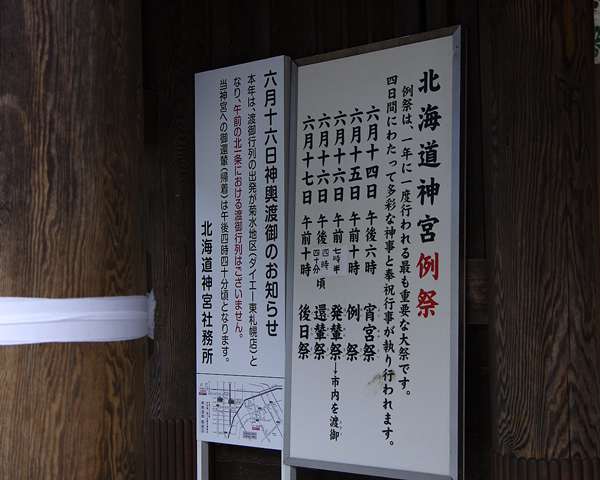 北海道神宮例祭
例祭は、一年に一度行われる最も重要な大祭です。
四日間にわたって多彩な神事と奉祝行事が執り行われます。
六月十四日 午後六時 宵宮祭
六月十五日 午前十時 例祭
六月十六日 午前七時半 発輦祭→市内を渡御
六月十六日 午後四時四十分頃 還輦祭
六月十七日 午前十時 後日祭
六月十六日神輿渡御のお知らせ
本年は、渡御行列の出発が菊水地区(ダイエー東札幌店)と
なり、午前の北一条における渡御行列はございません。
当神宮への御還輦(帰着)は午後四時四十分頃となります。
北海道神宮社務所